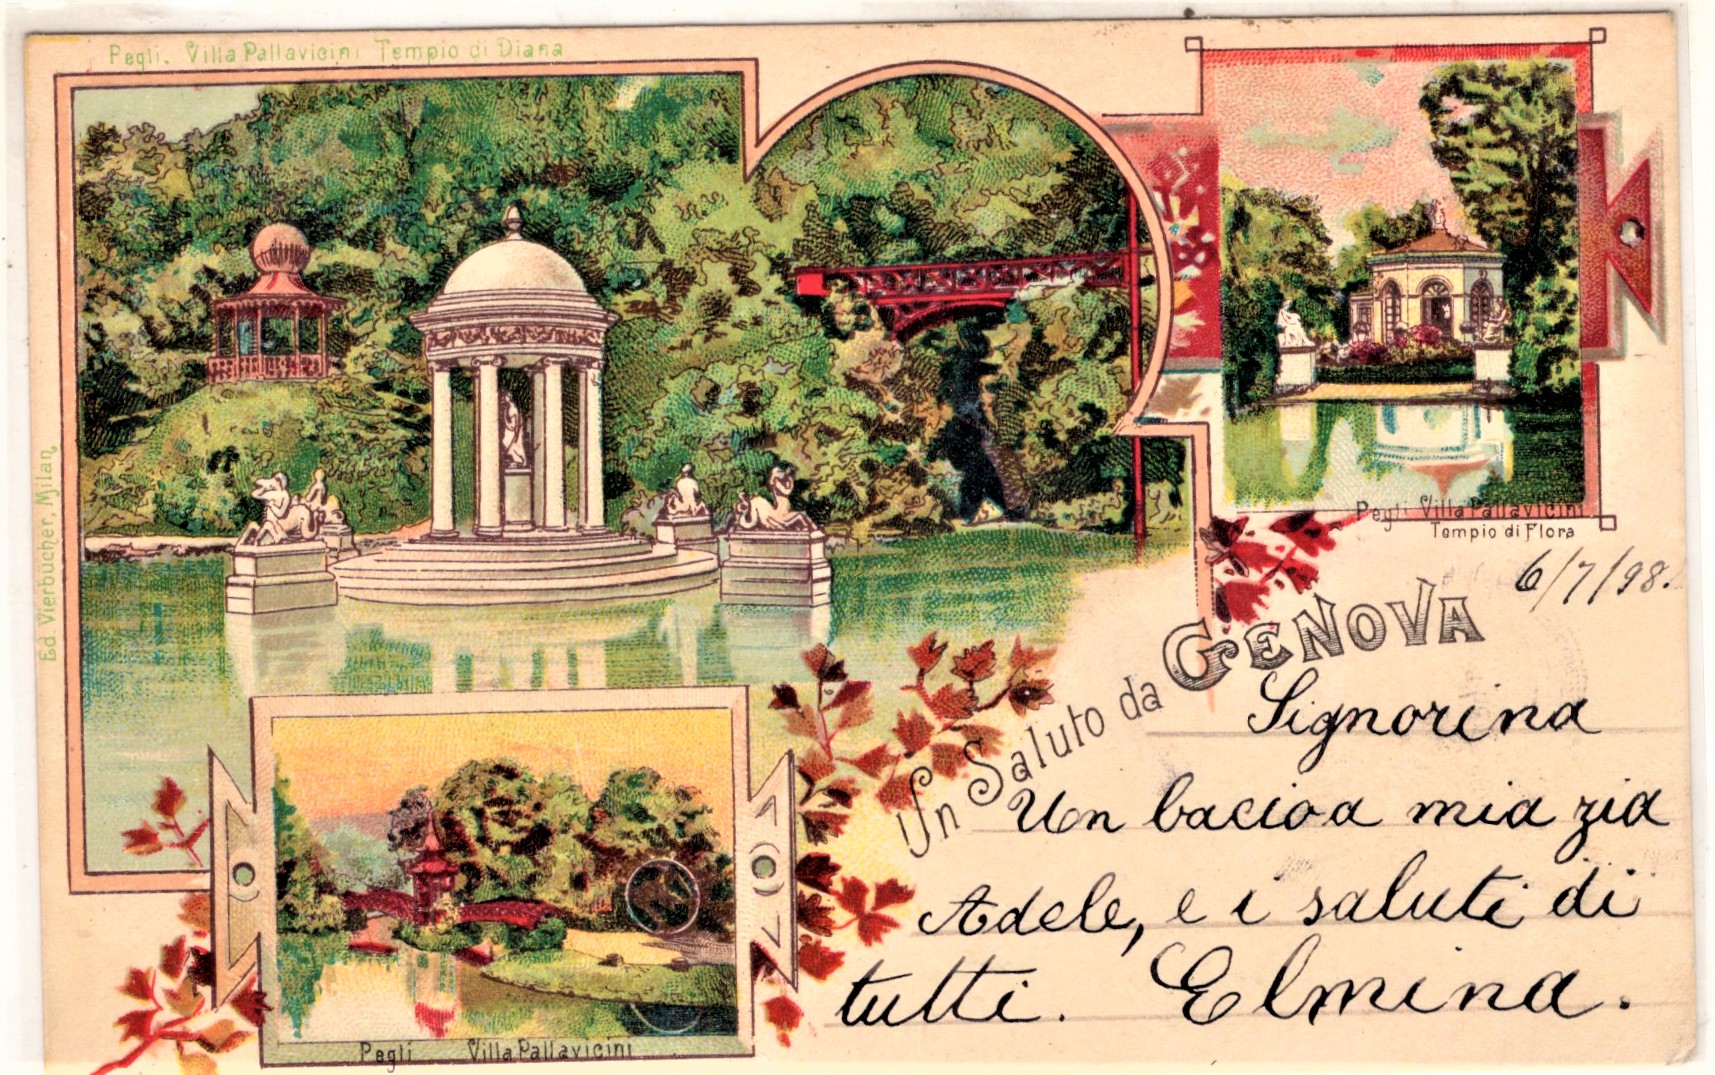 Pegli. Villa Pallavicini Tempio di Diana
Ed. Vierbucher, Milan
Pegli Villa Pallavicini
Tempio di Flora
6/7/98.
Un Saluto da GENOVA
Signorina
Un bacio a mia zia
Adele, e i saluti di
tutti. Elmina.
Pegli Villa Pallavicini